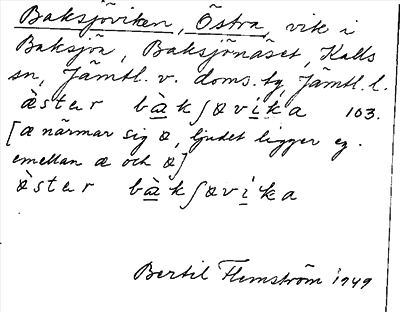 Baksjöviken, Östra, vik i
Baksjön, Baksjönäset, Kalls
sn, Jämtl. v. doms. tg, Jämtl. l.
æ̀star bàkʃøvika 103.
[æ närmar sig ø, ljudet ligger eg.
emellan æ och ø]
ø̀star bàkʃøvi'ka
Bertil Flemström 1949